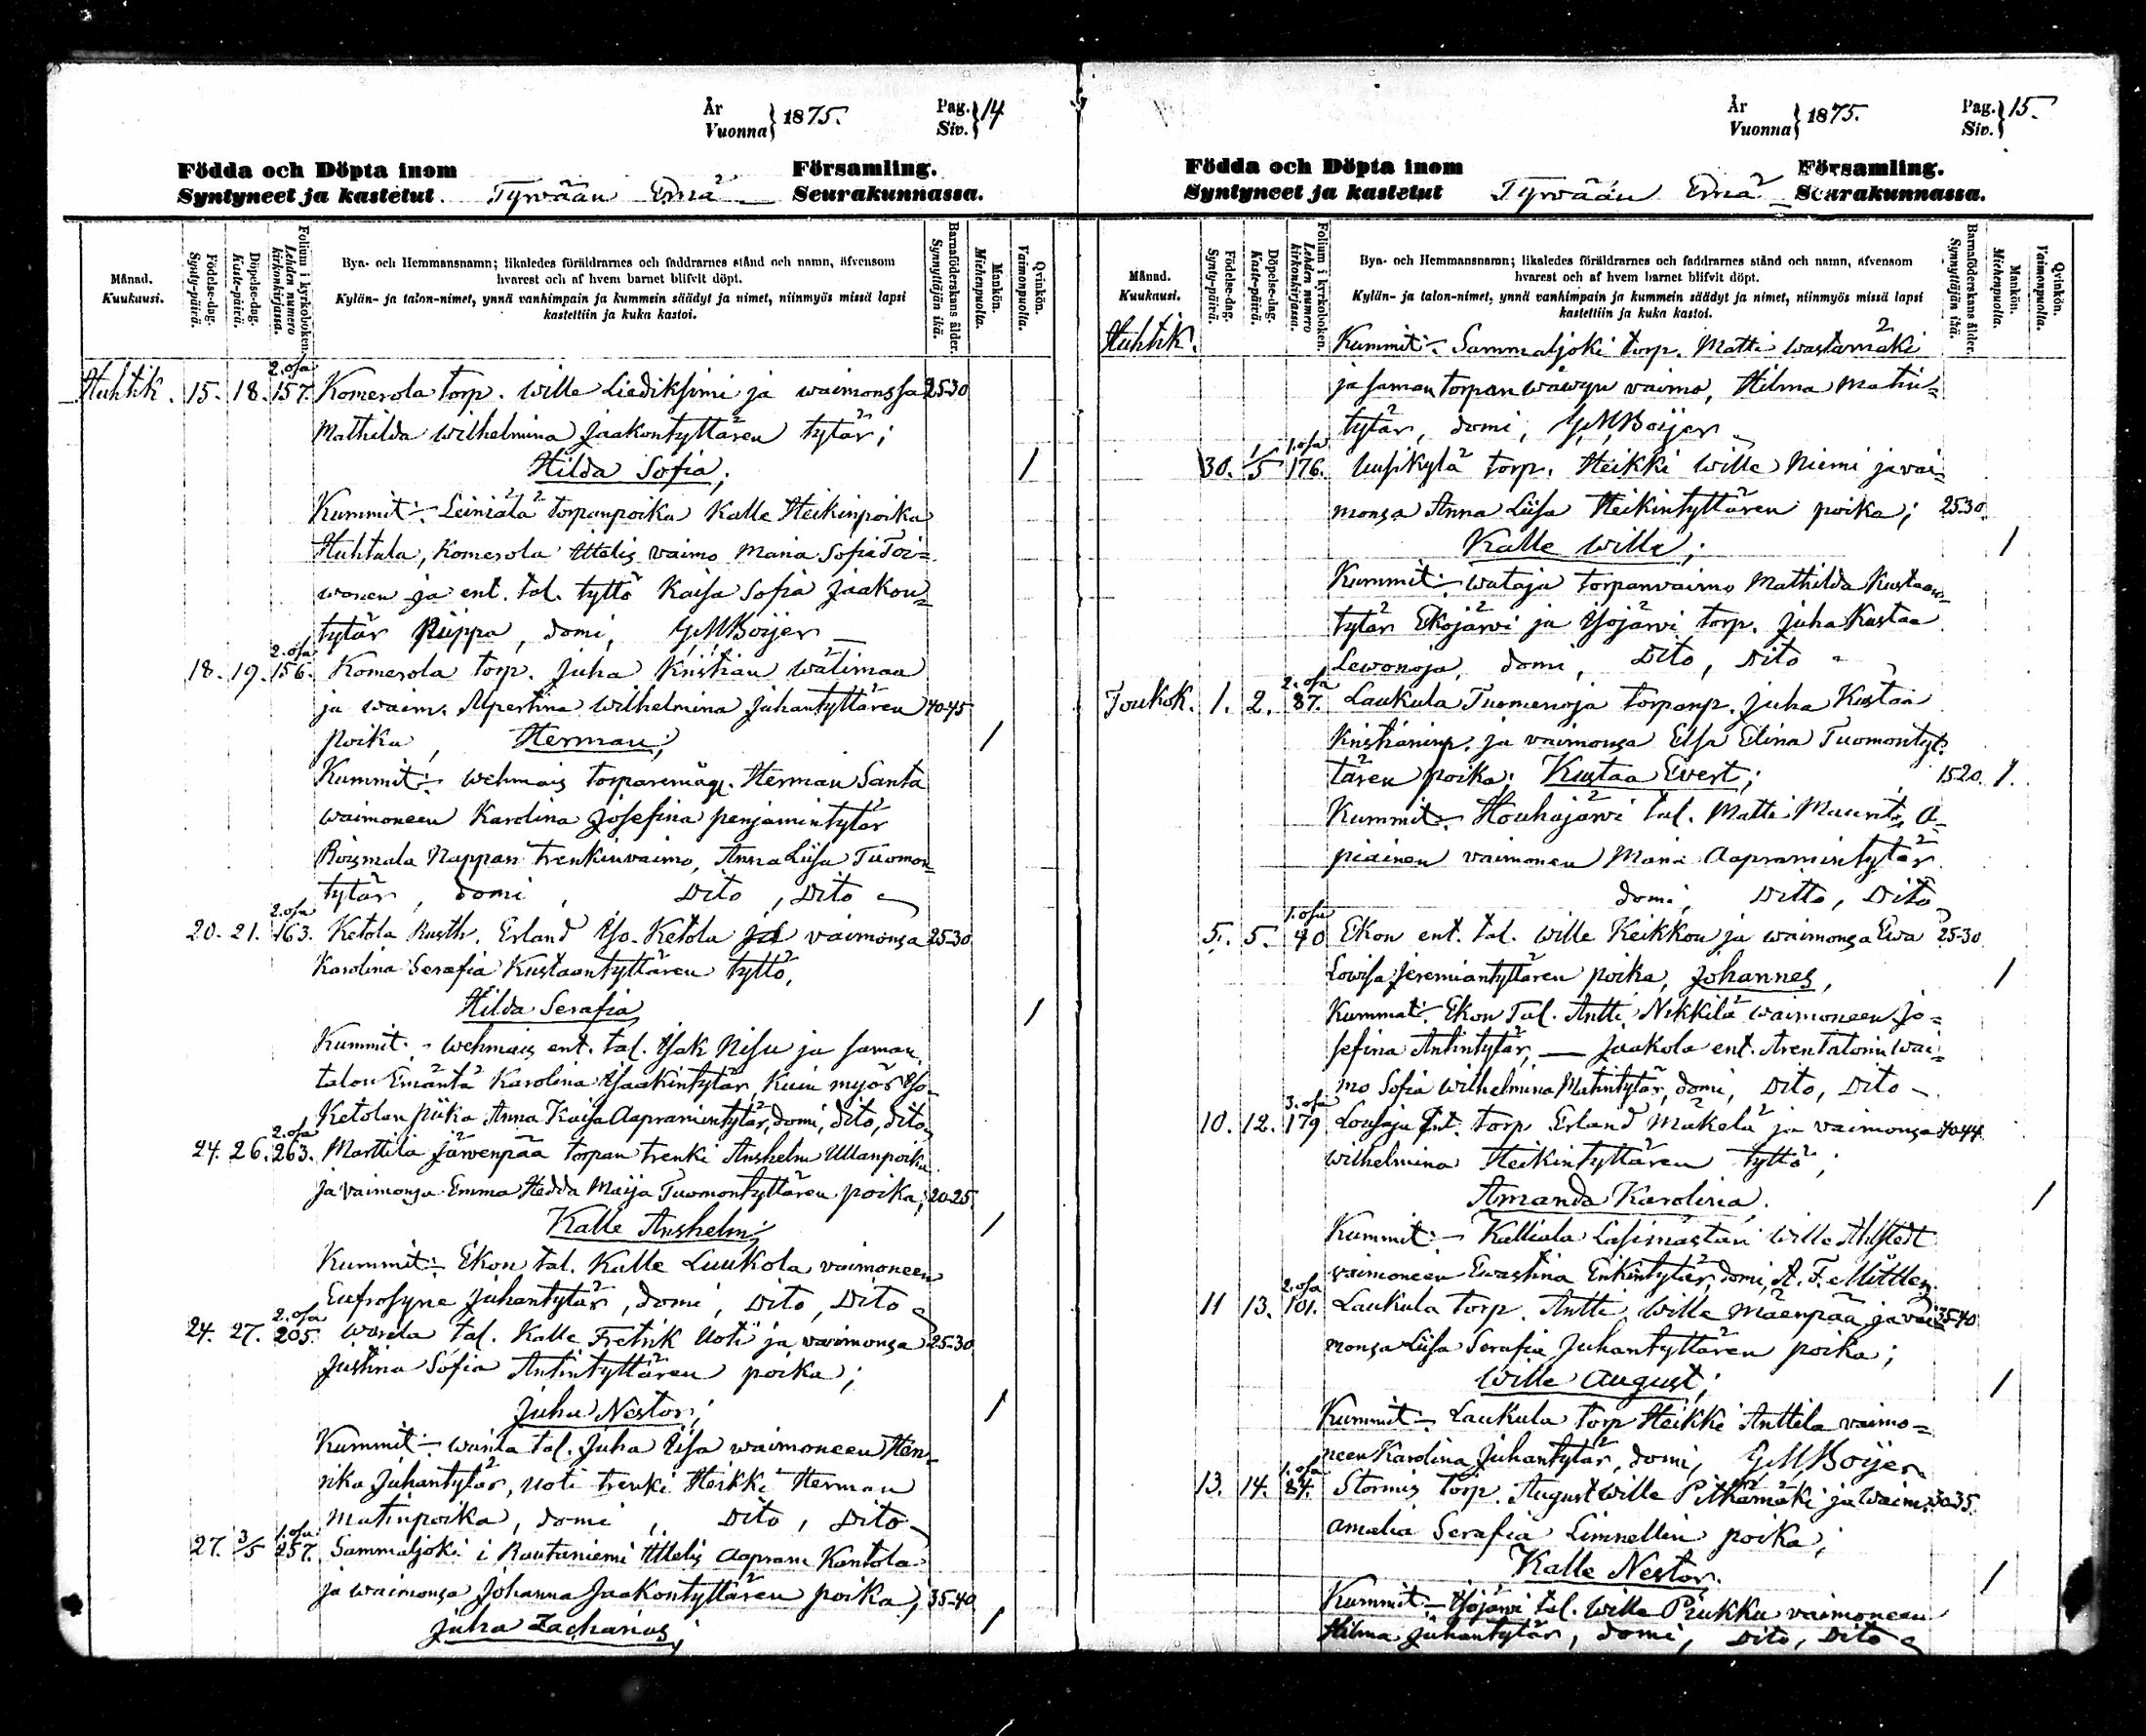 År
Vuonna } 1875.
Pag.
Siv. } 14
Födda och Döpta inom Församling.
Syntyneet ja kastetut. Tyrvään Emä Seurakunnassa.
Månad.
Kuukausi.
Födelse-dag.
Synty-päivä.
Döpelse-dag.
Kaste-päivä.
Folium i kyrkoboken.
Lehden numero kirkonkirjassa.
Bya- och Hemmansnamn; likaledes föräldrarnes och faddrarnes stånd och namn, äfvensom
hvarest och af hvem barnet blifvit döpt.
Kylän- ja talon-nimet, ynnä vanhimpain ja kummein säädyt ja nimet, niinmyös missä lapsi
kastettiin ja kuka kastoi.
Barnaföderskans ålder.
Synnyttäjän ikä.
Mankön.
Miehenpuolta.
Qvinkön.
Vaimonpuolta.
2. osa
Huhtik. 15. 18. 157. Komerola torp. Wille Liediksimi ja waimonssa 25-30
Mathilda Wilhelmina Jaakontyttären tytär;
Hilda Sofia; 1
Kummit:- Leiniälä torpanpoika Kalle Heikinpoika
Huhtala, Komerola Ittelis vaimo Maria Sofia Toi=
wonen ja ent. tal. tyttö Kaisa Sofia Jaakon=
tytär Piippa, domi, G,M,Boijer
2. osa
18. 19. 156. Komerola torp. Juha Kristian Wälimaa
ja waim. Alpertina Wilhelmina Juhantyttären 40-45
poika, Herman; 1
Kummit:- Wehmais torparemäg. Herman Santa
waimoneen Karolina Josefina penjamintytär
Roismala Nappan trenkinvaimo, Anna Liisa Tuomon=
tytär, domi, Dito, Dito
2. osa
20. 21. 163. Ketola Rusth. Erland Yso-Ketola ja vaimonsa 25-30
Karolina Serafia Kustaantyttären tyttö,
Hilda Serafia 1
Kummit:- Wehmais ent. tal. Isak Nisu ja saman
talon Emäntä Karolina Isaakintytär, kuin myös Yso-
Ketolan piika Anna Kaisa Aapramintytär, domi, dito, dito
2. osa
24. 26. 263. Marttila Järwenpää torpan trenki Anshelm Ullanpoika
ja vaimonsa Emma Hedda Maija Tuomontyttären poika; 20-25.
Kalle Anshelm; 1
Kummit:- Ekon tal. Kalle Luukola vaimoneen
Eufrosyne Juhantytär, domi, Dito, Dito
2. osa
24. 27. 205. tal. Kalle Fretrik Uoti ja vaimonsa 25-30
Justina Sofia Antintyttären poika;
Juha Nestor; 1
Kummit:- tal. Juha waimoneen Hen=
rika Juhantytär, Uoti trenki Heikki Herman
Matinpoika, domi, Dito, Dito
1. osa
27. 3/5 257. Sammaljoki i Rautaniemi Ittelis Aapram Kantola
ja waimonsa Johanna Jaakontyttären poika; 35-40
Juha Zacharias; 1
År
Vuonna } 1875.
Pag.
Siv. } 15.
Födda och Döpta inom Församling.
Syntyneet ja kastetut Tyrvään Emä Seurakunnassa.
Månad.
Kuukausi.
Födelse-dag.
Synty-päivä.
Döpelse-dag.
Kaste-päivä.
Folium i kyrkoboken.
Lehden numero kirkonkirjassa.
Bya- och Hemmansnamn; likaledes föräldrarnes och faddrarnes stånd och namn, äfvensom
hvarest och af hvem barnet blifvit döpt.
Kylän- ja talon-nimet, ynnä vanhimpain ja kummein säädyt ja nimet, niinmyös missä lapsi
kastettiin ja kuka kastoi.
Barnaföderskans ålder.
Synnyttäjän ikä.
Mankön.
Miehenpuolta.
Qvinkön.
Vaimonpuolta.
Huhtik. Kummit:- Sammaljoki torp. Matti Wastamäki
ja saman torpan wäwyn vaimo, Hilma Matin=
tytär, domi, G,M,Boijer
1. osa
30. 1/5 176. Uusikylä torp. Heikki Wille Niemi ja vai=
monsa Anna Liisa Heikintyttären poika; 25-30.
Kalle Wille; 1
Kummit:- Wataja torpanvaimo Mathilda Kustaan=
tytär Ekojärwi ja Ysojärwi torp. Juha Kustaa
Lewonoja, domi, Dito, Dito
2. osa
Toukok. 1. 2. 87. Laukula Tuomenoja torpanp. Juha Kustaa
Kristianinp. ja vaimonsa Elsa Elina Tuomontyt=
tären poika; Kustaa Evert; 15-20. 1.
Kummit:- Houhajärwi tal. Matti Maunts A=
piainen vaimonen Maria Aapramintytär
domi, Ditto, Dito
1. osa
5. 5. 40 Ekon ent. tal. Wille Keikkon ja waimonsa Ewa 25-30
Lovisa Jeremiantyttären poika, Johannes, 1
Kummat:- Ekon Tal. Antti Nikkilä waimoneen Jo=
sefina Antintytär, — Jaakola ent. Arentalorin Wai=
mo Sofia Wilhelmina Matintytär, domi, Dito, Dito
3. osa
10. 12. 179 Lousaja Ent. torp Erland Mäkelä ja vaimonsa 40-44.
Wilhelmina Heikintyttären tyttö;
Amanda Karolina, 1
Kummit:- Kalliala Lasimästari Wille Ahlstedt
vaimoneen Ewastina Erikintytär, domi, A. F. Mittler,
2. osa
11 13. 101. Laukula torp. Antti Wille Mäenpää ja vai= 35-40
monsa Liisa Serafia Juhantyttären poika;
Wille August; 1
Kummit:- Laukula torp Heikki Anttila vaimo=
neen Karolina Juhantytär, domi, G,M,Boijer
1. osa
13. 14. 84. Stormis torp. August Wille Pitkämäki ja Waim. 30-35.
Amalia Serafia Limnellin poika;
Kalle Nestor. 1
Kummit:- Ysojärwi tal. Wille Piukka vaimoneen
Hilma Juhantytär, domi, Dito, Dito